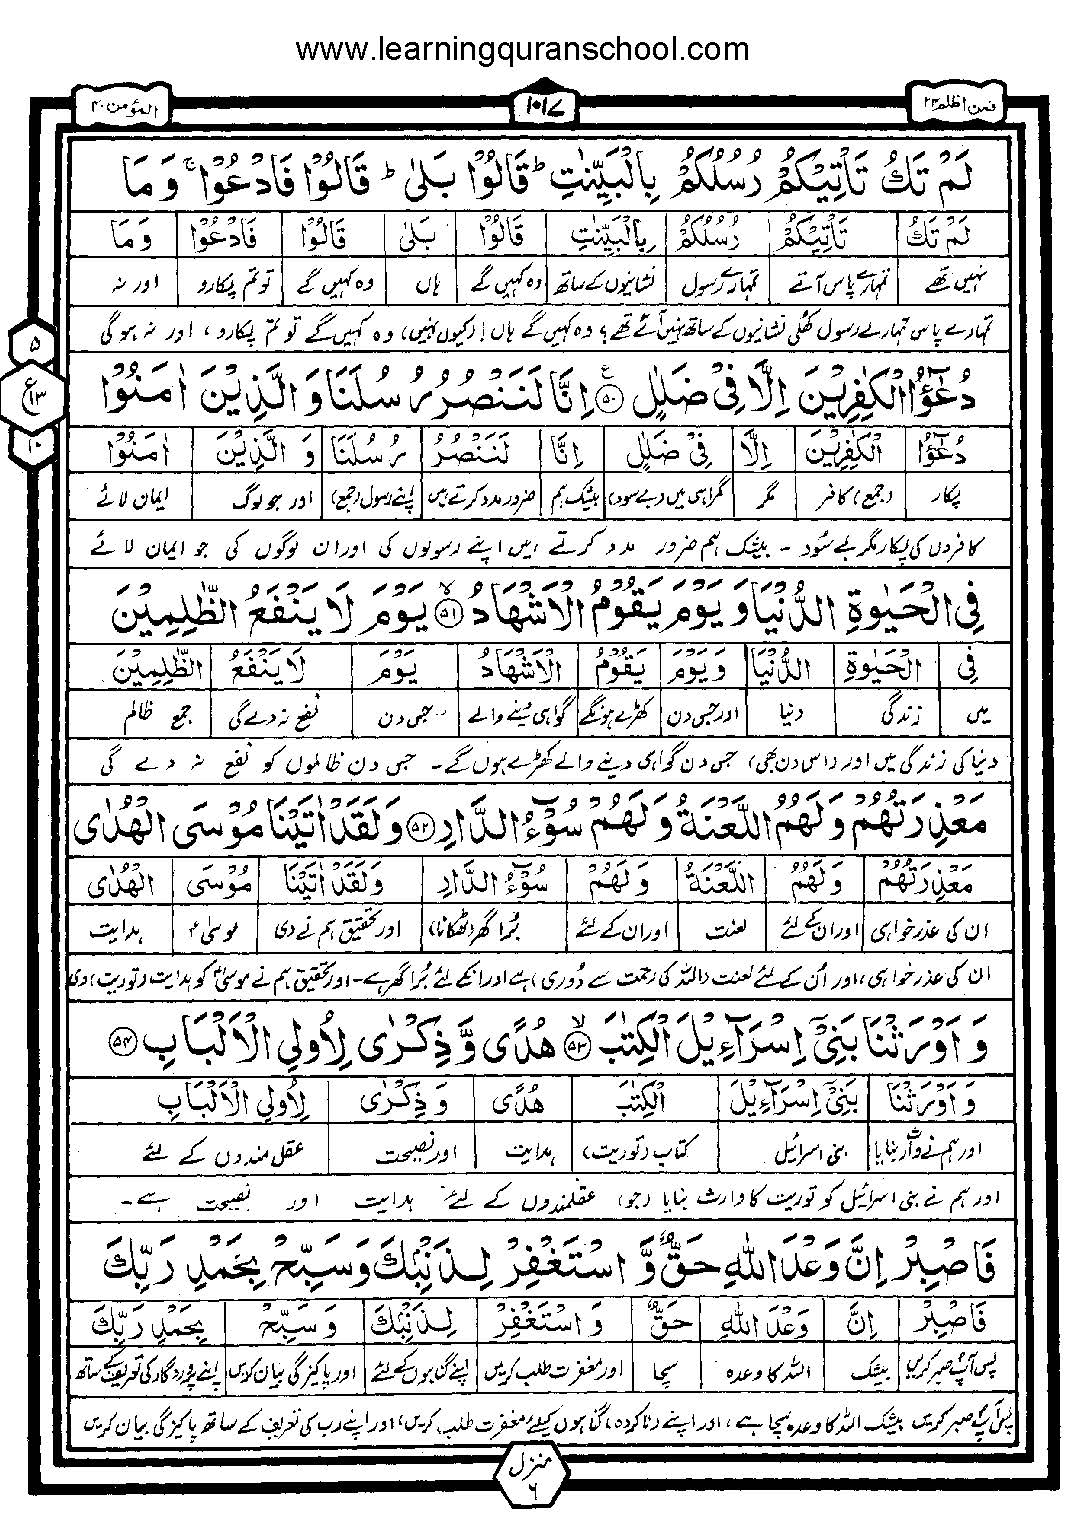 www.learningquranschool.com
فمن اظلم ۲۴
۱۰۱۷
المؤمن ۴۰
لَمْ تَكُ تَاْتِيْكُمْ رُسُلُكُمْ بِالْبَيِّنٰتِ ؕ قَالُوْا بَلٰى ؕ قَالُوْا فَادْعُوْا ۚ وَ مَا
لَمْ تَكُ تَاْتِيْكُمْ رُسُلُكُمْ بِالْبَيِّنٰتِ قَالُوْا بَلٰى قَالُوْا فَادْعُوْا وَ مَا
نہیں تھے تمہارے پاس آتے تمہارے رسول نشانیوں کے ساتھ وہ کہیں گے ہاں وہ کہیں گے تو تم پکارو اور نہ
تمہارے پاس تمہارے رسول کھلی نشانیوں کے ساتھ نہیں آئے تھے؟ وہ کہیں گے ہاں! (کیوں نہیں) وہ کہیں گے تو تم پکارو، اور نہ ہوگی
۵
ع
۱۳
۱۰
دُعٰٓؤُا الْكٰفِرِيْنَ اِلَّا فِيْ ضَلٰلٍ ۵۰ ع اِنَّا لَنَنْصُرُ رُسُلَنَا وَ الَّذِيْنَ اٰمَنُوْا
دُعٰٓؤُا الْكٰفِرِيْنَ اِلَّا فِيْ ضَلٰلٍ اِنَّا لَنَنْصُرُ رُسُلَنَا وَ الَّذِيْنَ اٰمَنُوْا
پکار (جمع) کافر مگر گمراہی میں (بے سود) بیشک ہم ضرور مدد کرتے ہیں اپنے رسول (جمع) اور جو لوگ ایمان لائے
کافروں کی پکار مگر بے سُود - بیشک ہم ضرور مدد کرتے ہیں اپنے رسولوں کی اور ان لوگوں کی جو ایمان لائے
فِي الْحَيٰوةِ الدُّنْيَا وَ يَوْمَ يَقُوْمُ الْاَشْهَادُ ۵۱ ۙ يَوْمَ لَا يَنْفَعُ الظّٰلِمِيْنَ
فِي الْحَيٰوةِ الدُّنْيَا وَ يَوْمَ يَقُوْمُ الْاَشْهَادُ يَوْمَ لَا يَنْفَعُ الظّٰلِمِيْنَ
میں زندگی دنیا اور جس دن کھڑے ہونگے گواہی دینے والے جس دن نفع نہ دے گی جمع ظالم
دنیا کی زندگی میں اور (اس دن بھی) جس دن گواہی دینے والے کھڑے ہوں گے - جس دن ظالموں کو نفع نہ دے گی
مَعْذِرَتُهُمْ وَ لَهُمُ اللَّعْنَةُ وَ لَهُمْ سُوْٓءُ الدَّارِ ۵۲ وَ لَقَدْ اٰتَيْنَا مُوْسَى الْهُدٰى
مَعْذِرَتُهُمْ وَ لَهُمُ اللَّعْنَةُ وَ لَهُمْ سُوْٓءُ الدَّارِ وَ لَقَدْ اٰتَيْنَا مُوْسَى الْهُدٰى
ان کی عذر خواہی اور ان کے لئے لعنت اور ان کے لئے بُرا گھر (ٹھکانا) اور تحقیق ہم نے دی موسیٰؑ ہدایت
ان کی عذر خواہی، اور اُن کے لئے لعنت (اللہ کی رحمت سے دُوری) ہے اور انکے لئے بُرا گھر ہے - اور تحقیق ہم نے موسیٰؑ کو ہدایت (توریت) دی
وَ اَوْرَثْنَا بَنِيْٓ اِسْرَآءِيْلَ الْكِتٰبَ ۵۳ ۙ هُدًى وَّ ذِكْرٰى لِاُولِي الْاَلْبَابِ ۵۴
وَ اَوْرَثْنَا بَنِيْٓ اِسْرَآءِيْلَ الْكِتٰبَ هُدًى وَ ذِكْرٰى لِاُولِي الْاَلْبَابِ
اور ہم نے وارث بنایا بنی اسرائیل کتاب (توریت) ہدایت اور نصیحت عقل مندوں کے لئے
اور ہم نے بنی اسرائیل کو توریت کا وارث بنایا (جو) عقلمندوں کے لئے ہدایت اور نصیحت ہے -
فَاصْبِرْ اِنَّ وَعْدَ اللّٰهِ حَقٌّ وَّ اسْتَغْفِرْ لِذَنْۢبِكَ وَ سَبِّحْ بِحَمْدِ رَبِّكَ
فَاصْبِرْ اِنَّ وَعْدَ اللّٰهِ حَقٌّ وَ اسْتَغْفِرْ لِذَنْۢبِكَ وَ سَبِّحْ بِحَمْدِ رَبِّكَ
پس آپؐ صبر کریں بیشک اللہ کا وعدہ سچا اور مغفرت طلب کریں اپنے گناہوں کے لئے اور پاکیزگی بیان کریں اپنے پروردگار کی تعریف کے ساتھ
پس آپؐ صبر کریں بیشک اللہ کا وعدہ سچا ہے، اور اپنے (ناکردہ) گناہوں کیلئے مغفرت طلب کریں، اور اپنے رب کی تعریف کے ساتھ پاکیزگی بیان کریں
منزل
۶